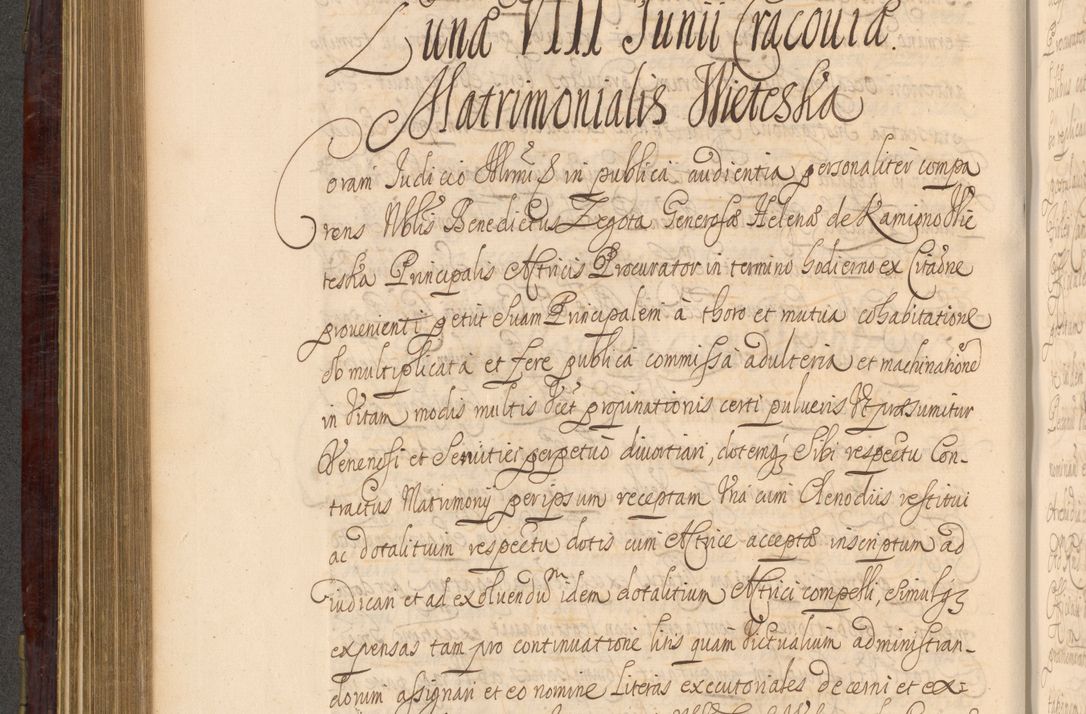 Luna VIII Junii Cracoviæ.
Matrimonialis Wieteska
Coram Judicio Illrmi P in publica audientia personaliter compa
rens Nblis Benedictus Zegota Generosæ Helenæ de Kamigno Wie
teska Principalis Actricis Procurator in termino hodierno ex Citaõne
provenienti petiit Suam Principalem à thoro et mutua cohabitatione
ob multiplicata et fere publica commissa adulteria et machinationẽ
in Vitam modis multis Vcet propinationis certi pulveris Ut præsumitur
Venenosi et Sevitiei perpetuò divortiari, dotemq3 Sibi respectu Con-
tractus Matrimonij per ipsum receptam Vná cum Clenodiis restitui
ac dotalitium respectu dotis cum Actrice acceptæ inscriptum ad
iudicari et ad exolvendum idem dotalitium Actrici compelli, Simulq3
expensas tam pro continuatione litis quam Victualium administran-
dorum assignari et eo nomine Literas executoriales decerni et ex: